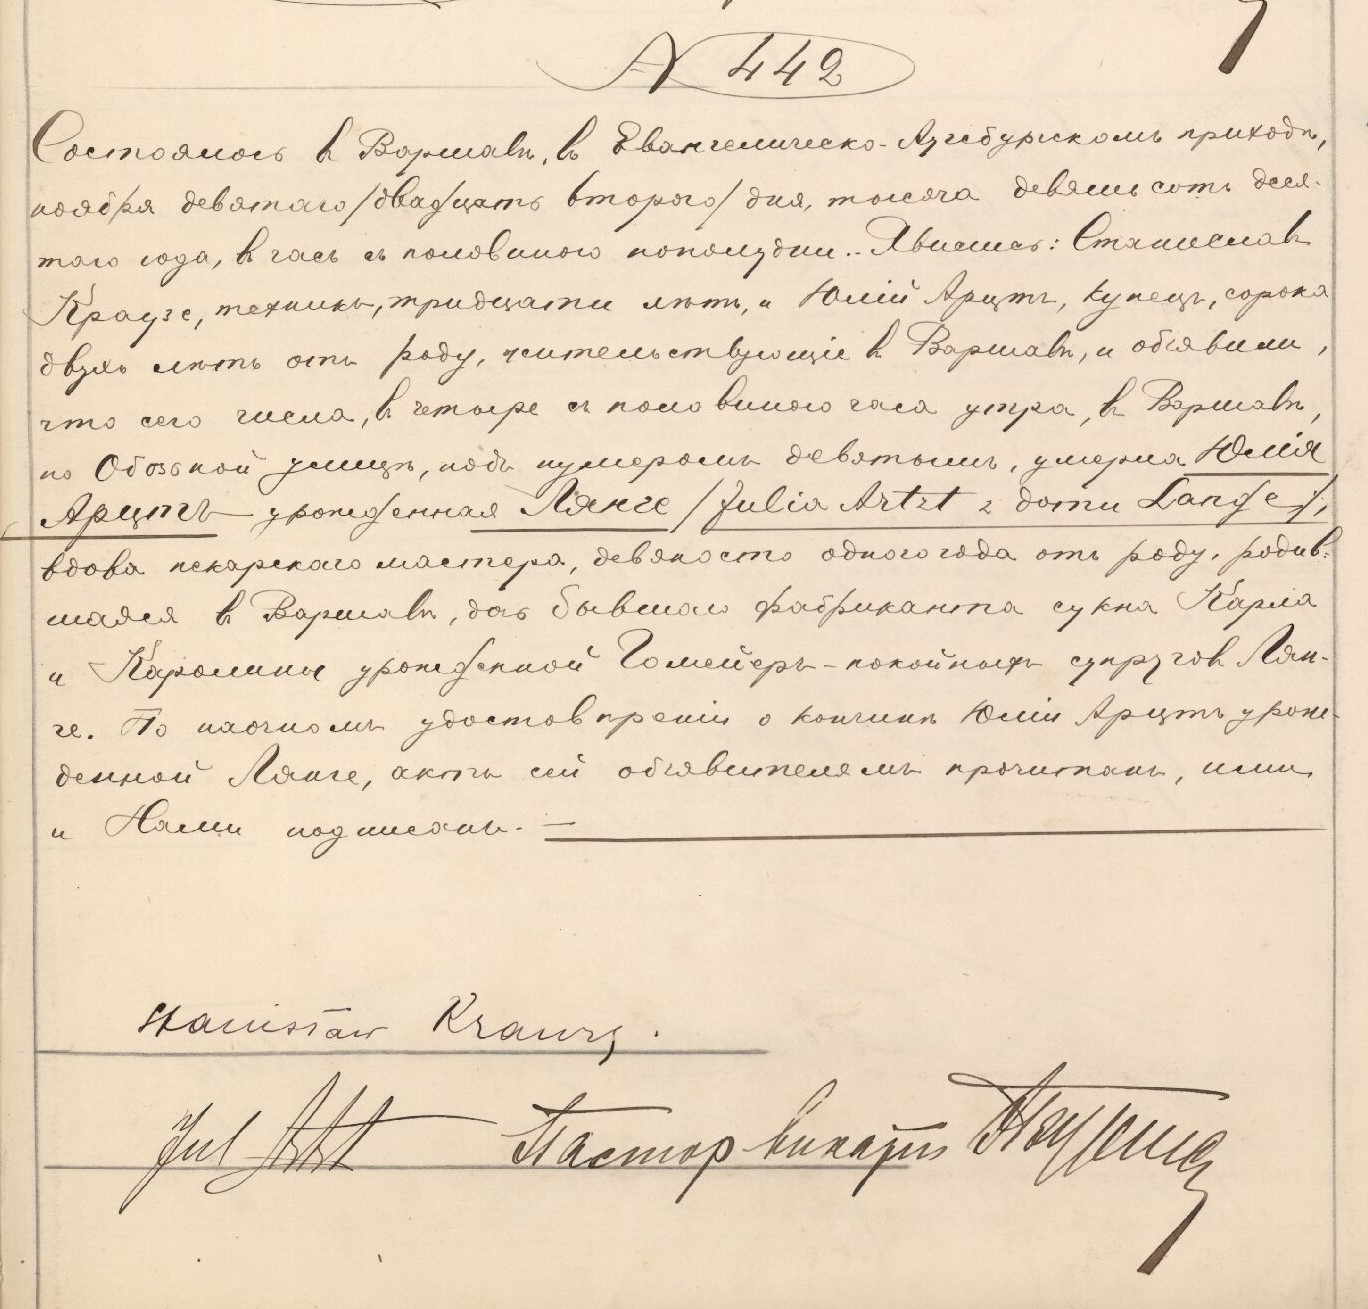 № 442
Состоялось въ Варшавѣ, въ Евангелическо-Аугсбургскомъ приходѣ,
ноября девятаго /двадцать второго/ дня, тысяча девятьсотъ деся-
таго года, въ часъ съ половиною пополудни.. Явились: Станиславъ
Краузе, техникъ, тридцати лѣтъ, и Юлій Арцтъ, купецъ, сорока
двухъ лѣтъ отъ роду, жительствующіе въ Варшавѣ, и объявили,
что сего числа, въ четыре съ половиною часа утра, въ Варшавѣ,
по Обозьной улицѣ, подъ нумеромъ девятымъ, умерла Юлія
Арцтъ урожденная Лянге /Julia Artzt z domu Lange/,
вдова пекарскаго мастера, девяносто одного года отъ роду, родив-
шаяся въ Варшавѣ, дочь бывшаго фабриканта сукна Карла
и Каролины урожденной Гомейеръ - покойныхъ супруговъ Лян-
ге. По наочномъ удостовѣреніи о кончинѣ Юліи Арцтъ урож-
денной Лянге, актъ сей объявителямъ прочитанъ, ими
и Нами подписанъ. —
Stanisław Krauze.
Jul Artzt Пасторъ-викарій